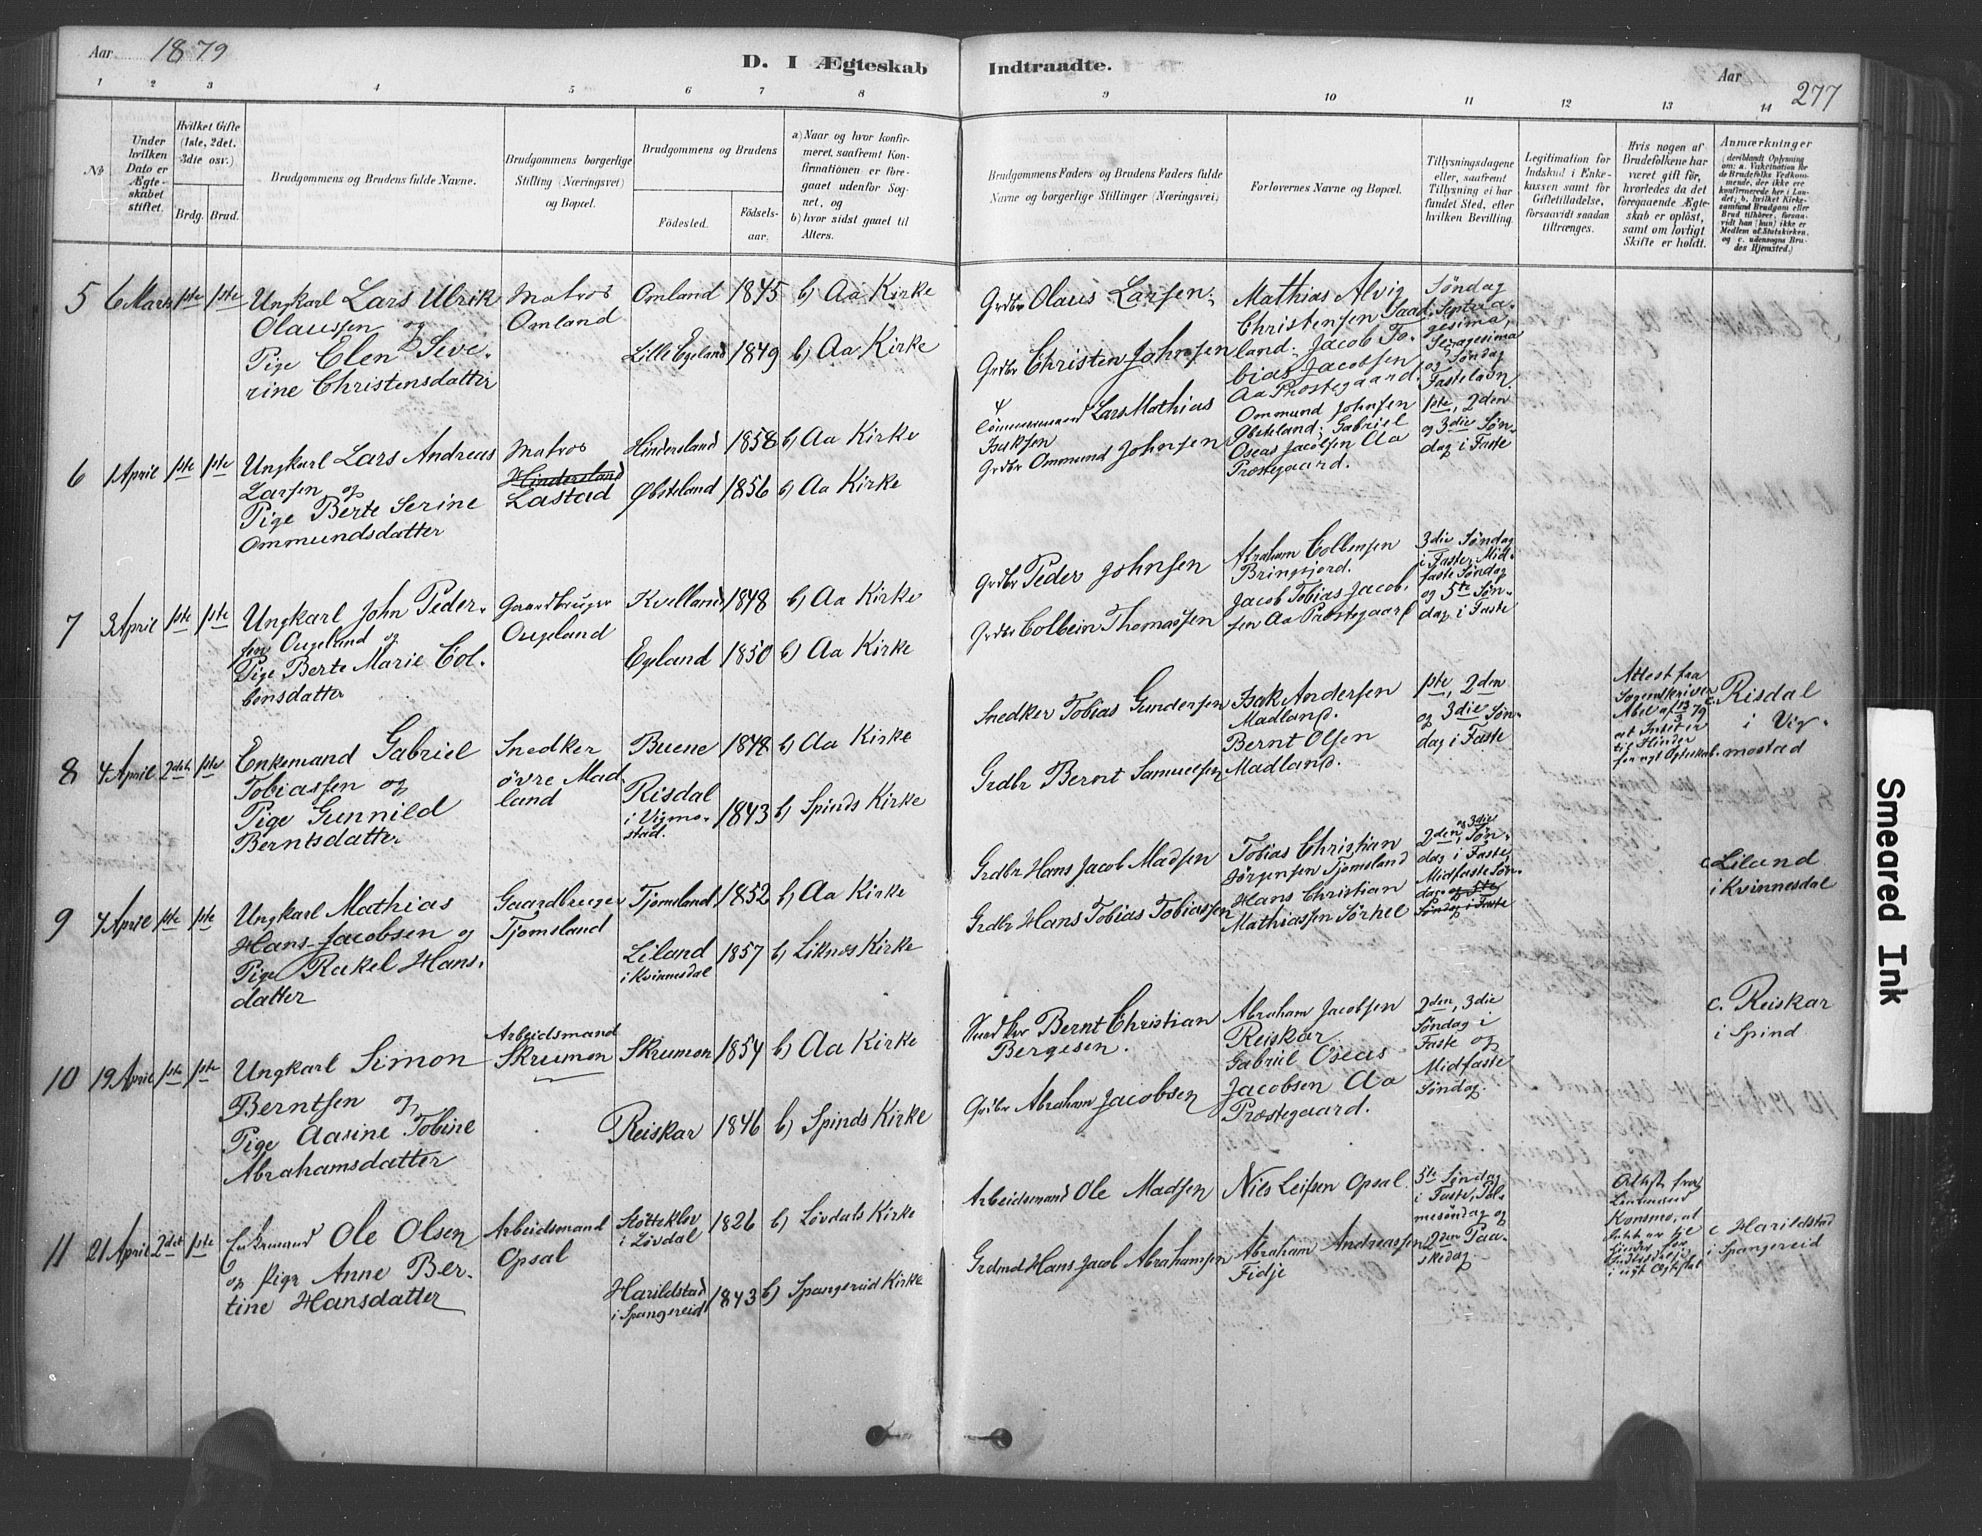 Aar 1879
D. I Ægteskab Indtraadte.
Aar
277
1 2 3 4 5 6 7 8 9 10 11 12 13 14
No
Under hvilken Dato er Ægteskabet stiftet.
Hvilket Gifte (1ste, 2det, 3die osv.)
Brdg. Brud.
Brudgommens og Brudens fulde Navne.
Brudgommens borgerlige Stilling (Næringsvei) og Bopæl.
Brudgommens og Brudens
Fødested.
Fødselsaar.
a) Naar og hvor konfirmeret, saafremt Konfirmationen er foregaaet udenfor Sognet, og
b) hvor sidst gaaet til Alters.
Brudgommens Faders og Brudens Faders fulde Navne og borgerlige Stillinger (Næringsvei).
Forlovernes Navne og Bopæl.
Tillysningsdagene eller, saafremt Tillysning ei har fundet Sted, efter hvilken Bevilling.
Legitimation for Indskud i Enkekassen samt for Giftetilladelse, forsaavidt saadan tiltrænges.
Hvis nogen af Brudefolkene har været gift før, hvorledes da det foregaaende Ægteskab er opløst, samt om lovligt Skifte er holdt.
Anmærkninger
(deriblandt Oplysning om: a. Vakcination for de Brudefolks Vedkommende, der ikke ere konfirmerede her i Landet; b. hvilket Kirkesamfund Brudgom eller Brud tilhører, forsaavidt han (hun) ikke er Medlem af Statskirken, og c. udensogns Brudes Hjemsted.)
5 6 Marts 1ste 1ste
Ungkarl Lars Ulrik
Olaussen og
Pige Elen Seve-
rine Christensdatter
Matros
Omland
Omland 1845 b) Aa Kirke
Lille Egeland 1849 b) Aa Kirke
Grdbr Olaus Larsen,
Grdbr Christen Johnsen
Mathias Alvig
Christensen Saad-
land; Jacob To-
bias Jacobsen
Aa Præstegaard.
Søndag
Septua-
gesima,
Sexagesima
og Søndag
Fastelavn.
6 1 April 1ste 1ste
Ungkarl Lars Andreas
Larsen og
Pige Berte Serine
Ommundsdatter
Matros
Hindersland
Lastad
Hindersland 1858 b) Aa Kirke
Øbsteland 1856 b) Aa Kirke
Lars Mathias
Isaksen
Grdbr Ommund Johnsen
Ommund Johnsen
Øbsteland; Gabriel
Oseas Jacobsen Aa
Præstegaard.
1ste, 2den
og 3die Søn-
dag i Faste
7 3 April 1ste 1ste
Ungkarl John Peder-
sen Ougeland og
Pige Berte Marie Col-
bensdatter
Gaardbruger
Ougeland
Kvelland 1848 b) Aa Kirke
Egeland 1850 b) Aa Kirke
Grdbr Peder Johnsen
Grdbr Colbein Thomassen
Abraham Colbensen
Bringsjord.
Jacob Tobias Jacob-
sen Aa Præstegaard
3die Søndag
i Faste, Mid-
faste Søndag
og 5te Søn-
dag i Faste
8 4 April 2det 1ste
Enkemand Gabriel
Tobiassen og
Pige Gunnild
Berntsdatter
Snedker
øvre Mad-
land
Buene 1848 b) Aa Kirke
Risdal
i Vigmo-
stad.
1843 b) Spinds Kirke
Snedker Tobias Gundersen
Grdbr Bernt Samuelsen
Isak Andersen
Madland.
Bernt Olsen
Madland.
1ste, 2den
og 3die Søn-
dag i Faste
Attest fra
Sorenskriver
Abel af 13/3 79
at Intet er
til Hinder
for nyt Ægteskab.
c. Risdal
i Vig-
mostad
9 4 April 1ste 1ste
Ungkarl Mathias
Hans Jacobsen og
Pige Rakel Hans-
datter
Gaardbruger
Tjomsland
Tjomsland 1852 b) Aa Kirke
Liland
i Kvinnesdal
1857 b) Liknes Kirke
Grdbr Hans Jacob Madsen
Grdbr Hans Tobias Tobiassen
Tobias Christian
Jørgensen Tjomsland
Hans Christian
Mathiassen Sørhel
2den, og 3die Søn-
dag i Faste,
Midfaste Søn-
dag og 5te
Søndag i Faste
c. Liland
i Kvinnesdal
10 19 April 1ste 1ste
Ungkarl Simon
Berntsen og
Pige Aasine Tobine
Abrahamsdatter
Arbeidsmand
Skrumon
Skrumon 1854 b) Aa Kirke
Reiskar 1846 b) Spinds Kirke
Bernt Christian
Bergesen.
Grdbr Abraham Jacobsen
Abraham Jacobsen
Reiskar
Gabriel Oseas
Jacobsen Aa
Præstegaard.
2den, 3die
Søndag i
Faste og
Midfaste
Søndag.
c. Reiskar
i Spind
11 21 April 2det 1ste
Enkemand Ole Olsen
og Pige Anne Ber-
tine Hansdatter
Arbeidsmand
Opsal
i Løvdal
1826 b) Løvdals Kirke
Harildstad
i Spangereid
1843 b) Spangereid Kirke
Arbeidsmand Ole Madsen
Grdmd Hans Jacob Abrahamsen
Nils Leifsen Opsal.
Abraham Andreassen
Fidje
5te Søndag
i Faste, Pal-
mesøndag og
2den Paa-
skedag.
Attest fra
Lensmand
Konsmo, at
c Harildstad
i Spangereid
Smeared Ink